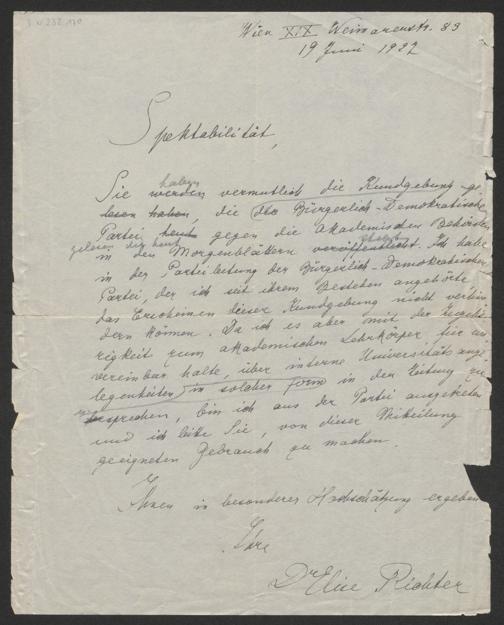 Wien XIX Weimarerstr. 83
19 Juni 1932
Spektabilität,
haben
Sie werden vermutlich die Kundgebung ge-
lesen haben, die die Bürgerlich-Demokratische
Partei heute gegen die akademischen Behörden
gelesen, die heut
in den Morgenblättern veröffentlicht. Ich habe
in der Parteileitung der Bürgerlich-Demokratischen
Partei, der ich seit ihrem Bestehen angehörte,
das Erscheinen dieser Kundgebung nicht verhin-
dern können. Da ich es aber mit der Zugehö-
rigkeit zum akademischen Lehrkörper für un-
vereinbar halte, über interne Universitätsange-
legenheiten in solcher Form in den Zeitung zu
sprechen, bin ich aus der Partei ausgetreten
und ich bitte Sie, von dieser Mitteilung
geeigneten Gebrauch zu machen.
Ihnen in besonderer Hochschätzung ergeben
Ihre
Dr Elise Richter